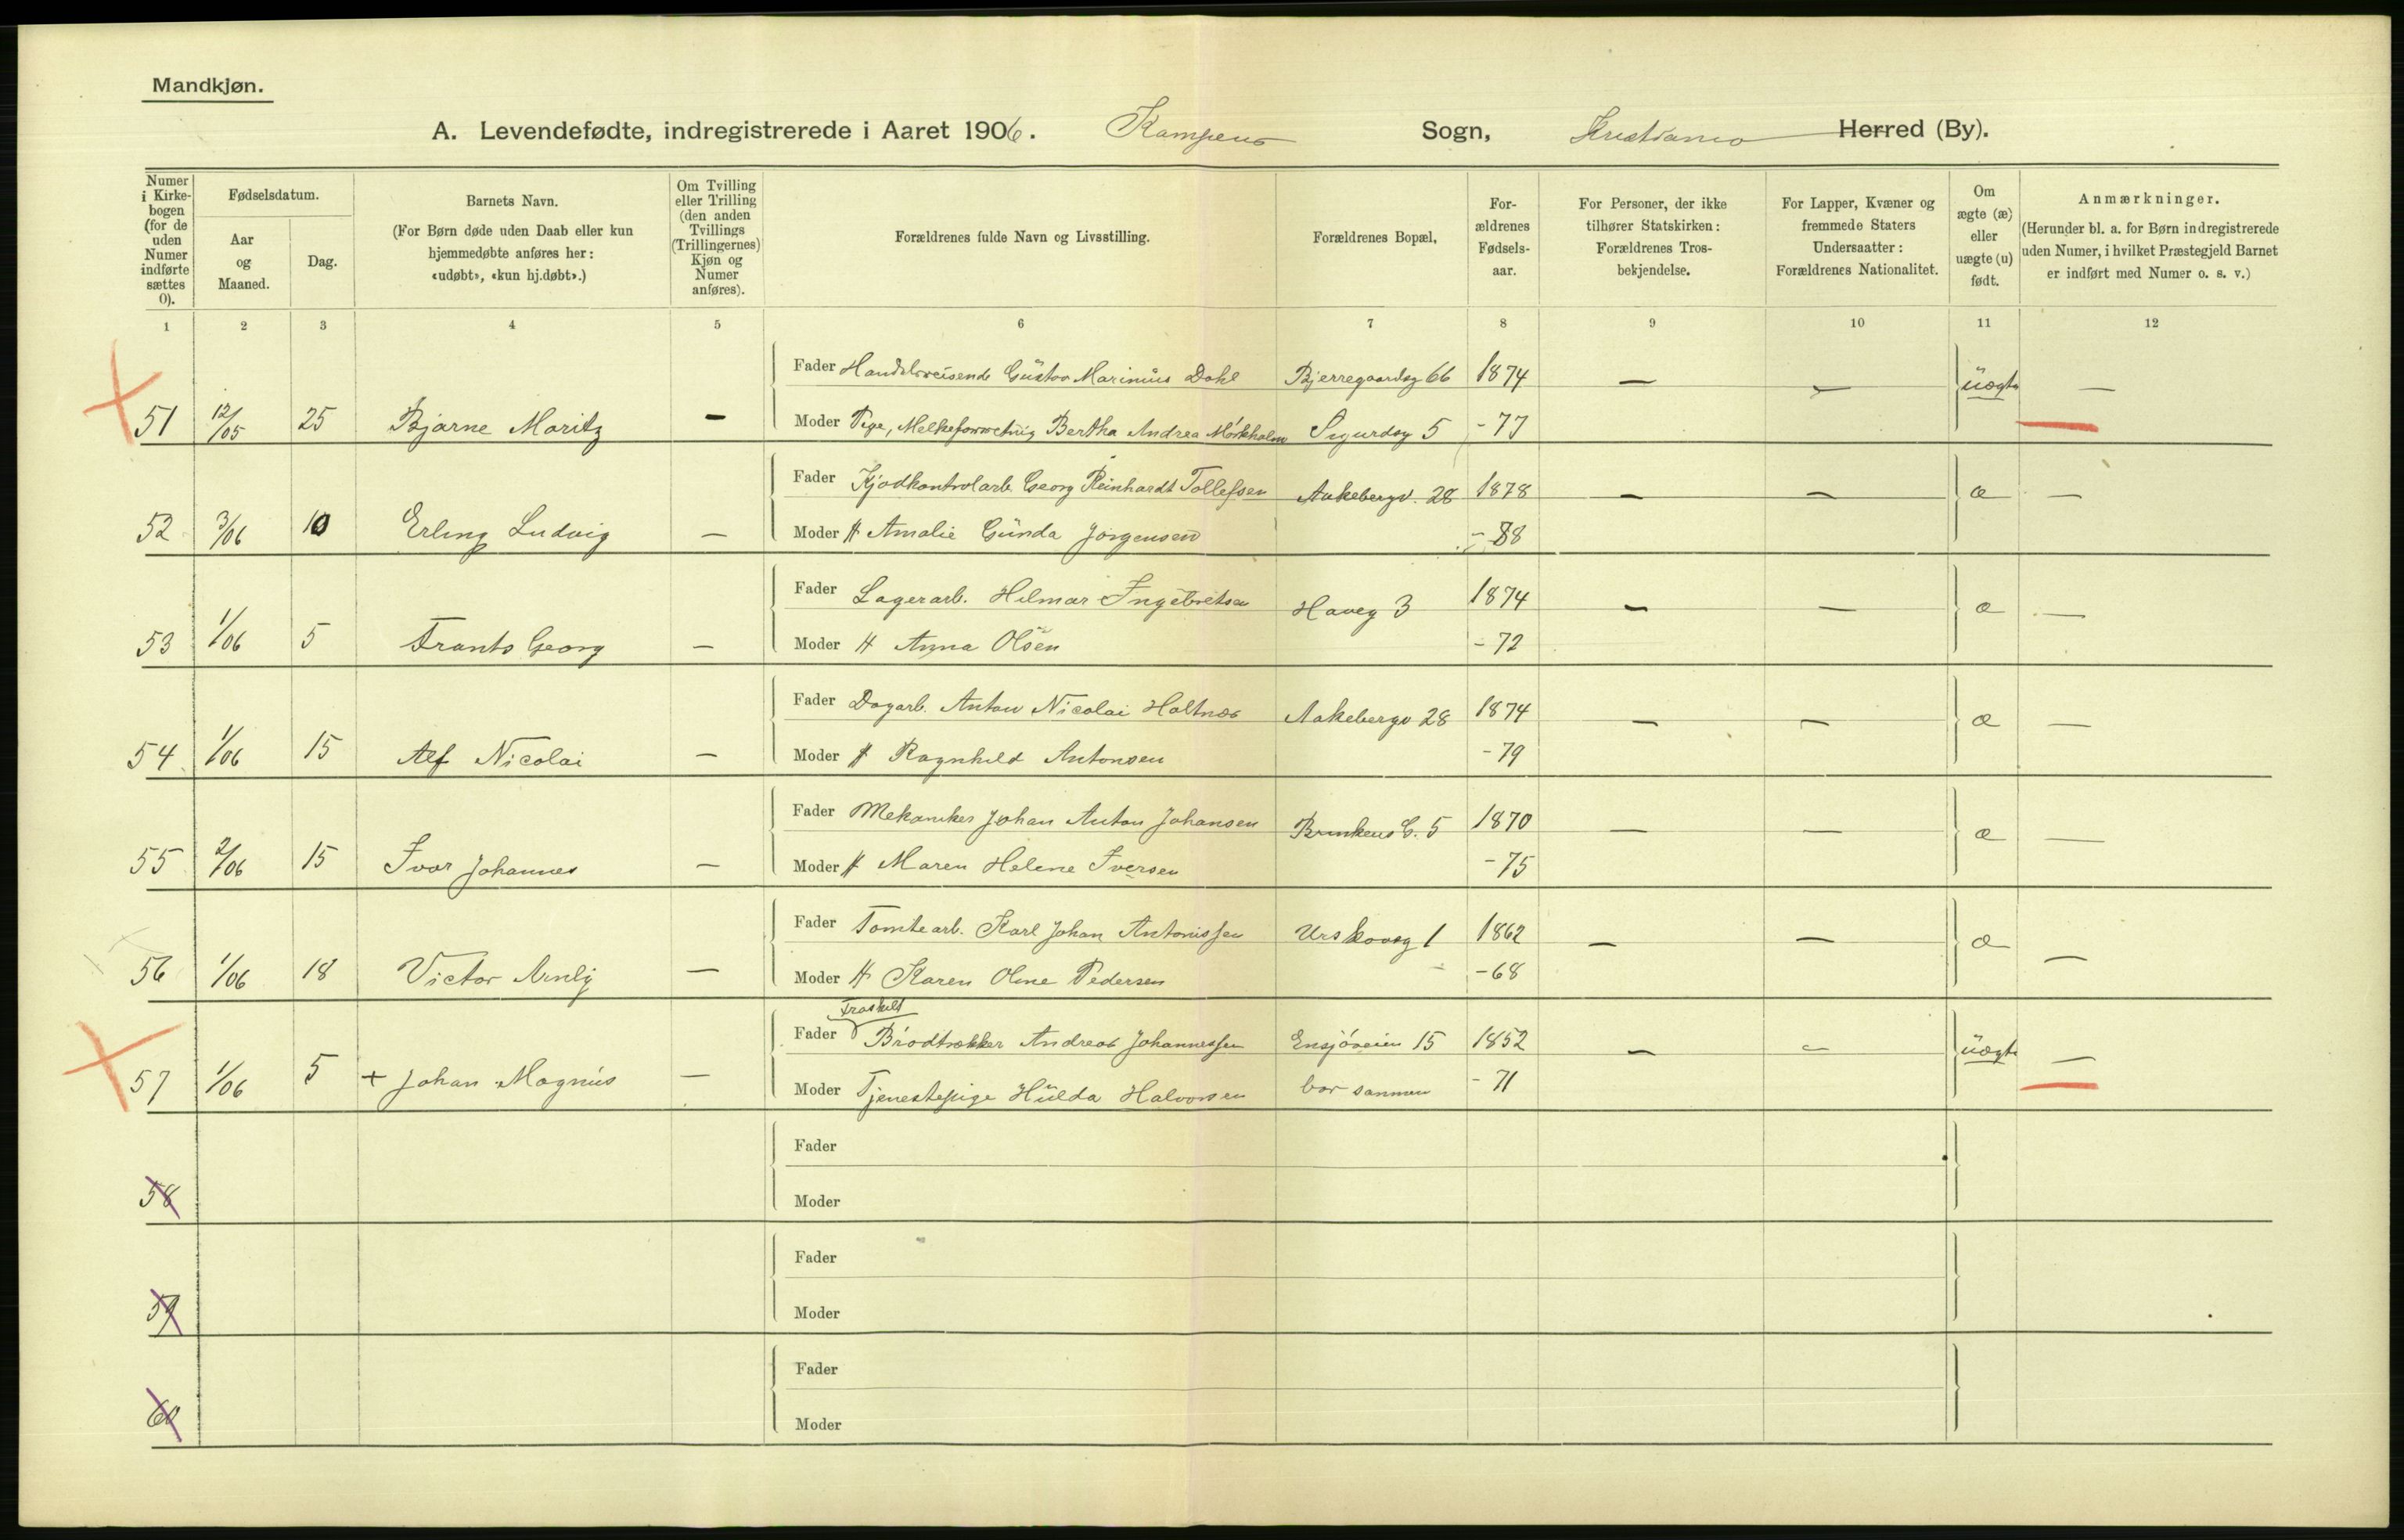 Mandkjøn.
A. Levendefødte, indregistrerede i Aaret 1906. Kampens Sogn, Kristiania Herred (By).
Numer i Kirke-bogen (for de uden Numer indførte sættes 0).
Fødselsdatum.
Aar og Maaned.
Dag.
Barnets Navn.
(For Børn døde uden Daab eller kun hjemmedøbte anføres her: «udøbt», «kun hj.døbt».)
Om Tvilling eller Trilling (den anden Tvillings (Trillingernes) Kjøn og Numer anføres).
Forældrenes fulde Navn og Livsstilling.
Forældrenes Bopæl,
For-ældrenes Fødsels-aar.
For Personer, der ikke tilhører Statskirken: Forældrenes Tros-bekjendelse.
For Lapper, Kvæner og fremmede Staters Undersaatter: Forældrenes Nationalitet.
Om ægte (æ) eller uægte (u) født.
Anmærkninger.
(Herunder bl. a. for Børn indregistrerede uden Numer, i hvilket Præstegjeld Barnet er indført med Numer o. s. v.)
1 2 3 4 5 6 7 8 9 10 11 12
Fader Handelsreisende Gustav Marinius Dahl Bjerregaardsg 66 1874 — — uægte —
51 12/05 25 Bjarne Moritz — Moder Pige, Melkeforretnig Bertha Andrea Mörkholm Sigurdsg 5 - 77
Fader Kjødkontrolarb. Georg Reinhardt Tollefsen Aakebergv. 28 1878 — — æ —
52 3/06 10 Erling Ludvig — Moder H Amalie Gunda Jørgensen - 88
Fader Lagerarb. Hilmar Ingebretsen Haveg 3 1874 — — æ —
53 1/06 5 Frants Georg — Moder H Anna Olsen - 72
Fader Dagarb. Anton Nicolai Holtnæs Aakebergv 28 1874 — — æ —
54 1/06 15 Alf Nicolai — Moder H Ragnhild Antonsen - 79
Fader Mekaniker Johan Anton Johansen Brinkens G. 5 1870 — — æ —
55 2/06 15 Ivar Johannes — Moder H Maren Helene Iversen - 75
Fader Tomtearb. Karl Johan Antonissen Urskovsg 1 1862 — — æ —
56 1/06 18 Victor Arnly — Moder H Karen Oline Pedersen - 68
Fraskilt
Fader Brödtrækker Andreas Johannessen Ensjöveien 15 1852 — — uægte —
57 1/06 5 + Johan Magnus — Moder Tjenestepige Hulda Halvorsen bor sammen - 71
Fader
58 Moder
Fader
59 Moder
Fader
60 Moder